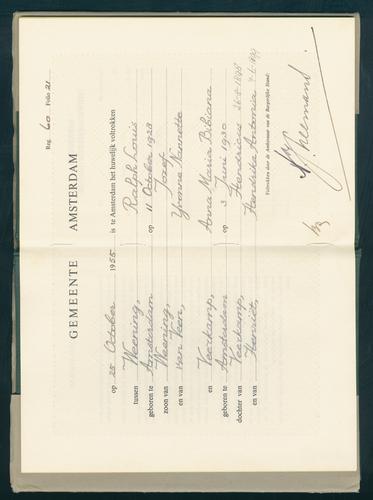 Reg. 60 Folio 21
GEMEENTE AMSTERDAM
op 25 October 1955 is te Amsterdam het huwelijk voltrokken
tussen Weening, Ralph Louis
geboren te Amsterdam op 11 October 1928
zoon van Weening, Jozef
en van van Veen, Yvonne Nannette
en Veerkamp, Anna Maria Bibiana
geboren te Amsterdam op 3 Juni 1930
dochter van Veerkamp, Hendrikus
en van Hendrika Antonia
Voltrokken door de Ambtenaar van de Burgerlijke Stand: